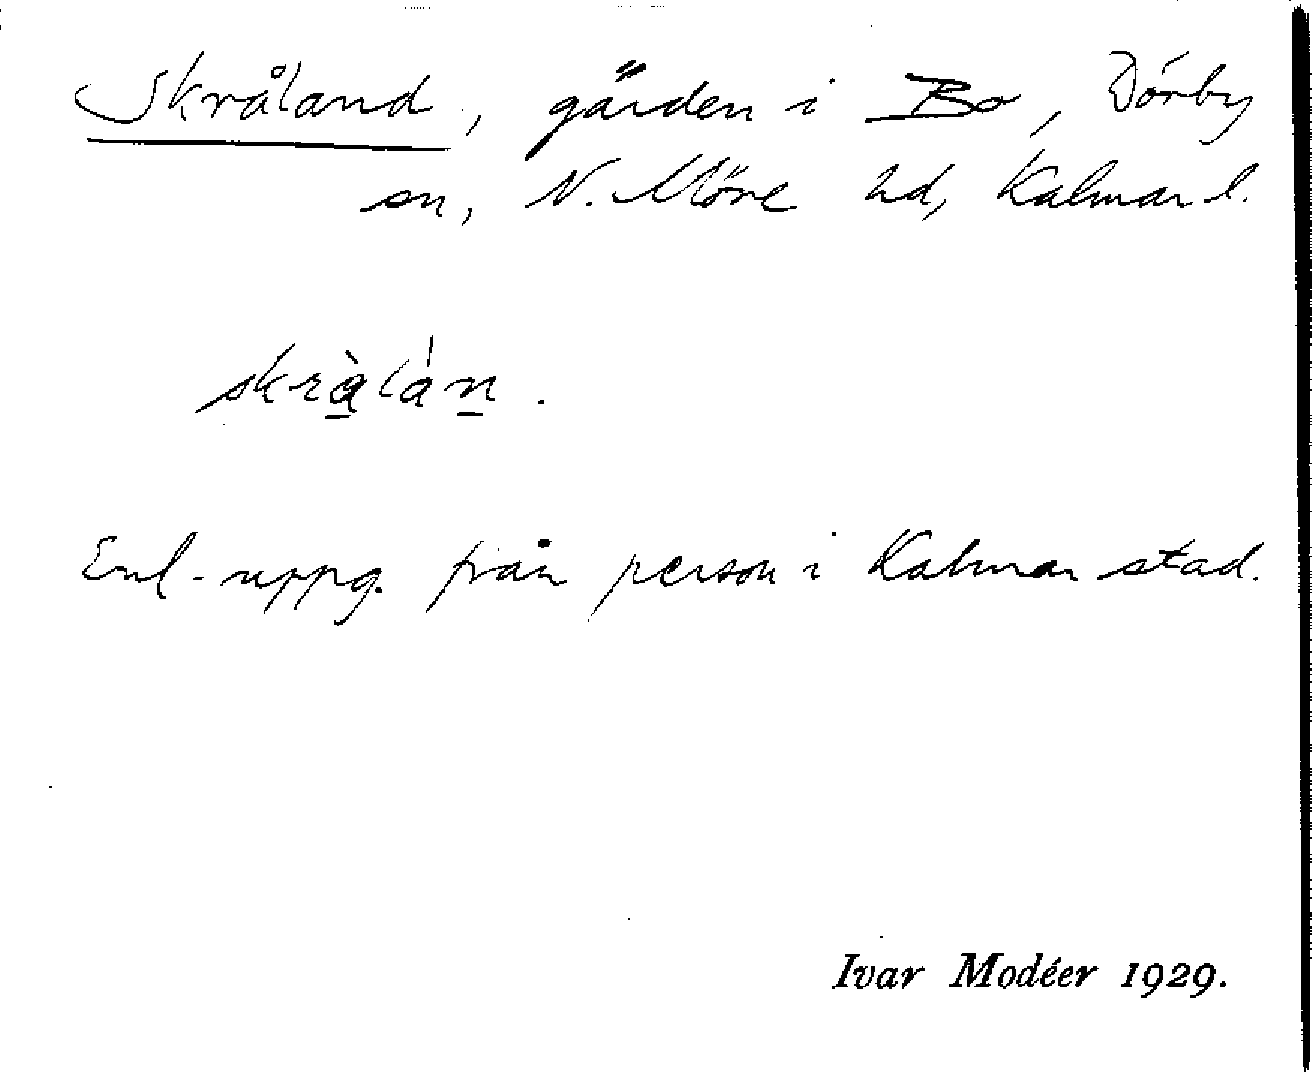 Skråland, gärden i Bo, Dörby
sn, N. Möre hd, Kalmar l.
skràlán.
Enl. uppg. från person i Kalmar stad.
Ivar Modéer 1929.